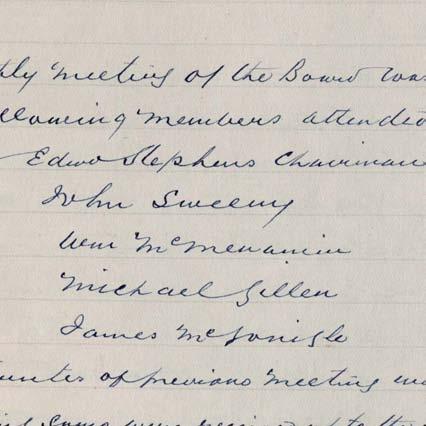 thly meeting of the Board was
llowing members attended
Edwd Stephens Chairman
John Sweeny
Wm McMenamin
Michael Gillen
James McGonigle
inutes of previous meeting